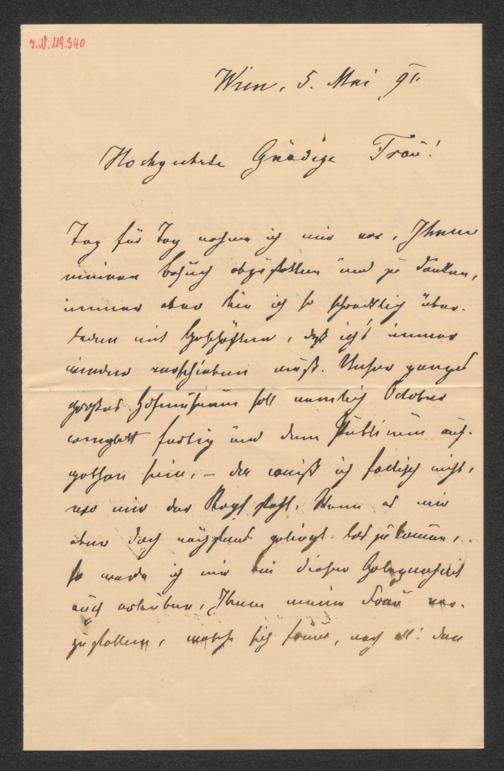 J.N. 119.340
Wien, 5. Mai 91
Hochgeehrte Gnädige Frau!
Tag für Tag nehme ich mir vor, Ihnen
meinen Besuch abzustatten und zu danken,
immer aber bin ich so schrecklich über-
laden mit Geschäften, daß ich's immer
wieder verschieben muß. Unser ganzes
großes Hofmuseum soll nemlich October
complett fertig und dem Publikum auf-
gethan sein, – da weiß ich factisch nicht,
wo mir der Kopf steht. Wenn es mir
aber doch nächstens gelingt los zu kommen,
so werde ich mir bei dieser Gelegenheit
auch erlauben, Ihnen meine Frau vor-
zustellen, welche sich freut, nach all' den